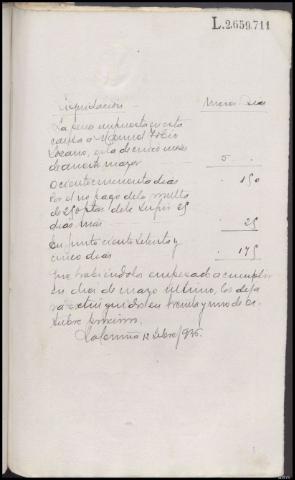 L.2.659.711
Liquidación Meses Dias
La pena impuesta en esta
causa a Manuel
Lozano, es la de cinco meses
de arresto mayor 5 .
o ciento cincuenta dias . 150
Por el no pago de la multa
de 250 ptas debe sufrir 25
dias mas . 25
En junto ciento setenta y
cinco dias . 175
Que habiendola empezado a cumplir
en diez de mayo ultimo, los deja
ra extinguidos en treinta y uno de Oc
tubre proximo.
1936